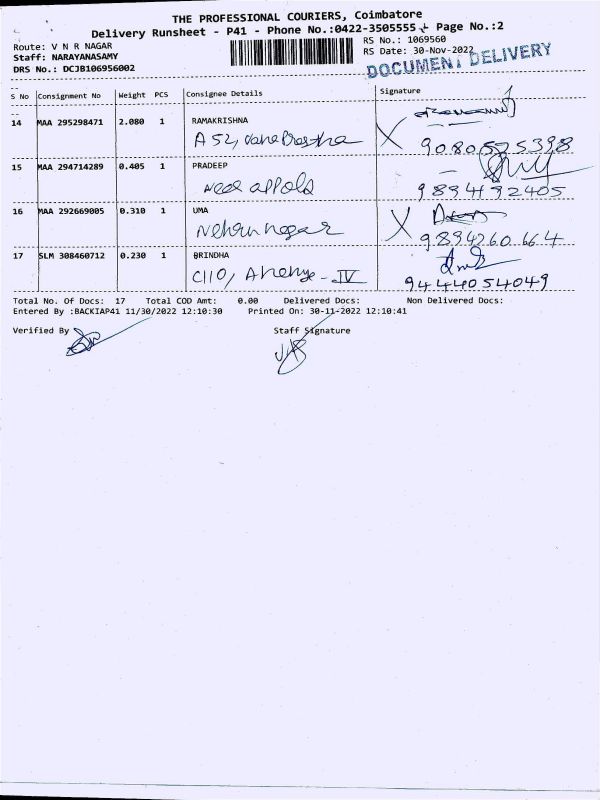 THE PROFESSIONAL COURIERS, Coimbatore
Delivery Runsheet - P41 - Phone No.:0422-3505555 Page No.:2
Route: V N R NAGAR
RS No.: 1069560
Staff: NARAYANASAMY
RS Date: 30-Nov-2022
DRS No.: DCJB106956002
DOCUMENT DELIVERY
S No Consignment No Weight PCS Consignee Details Signature
14 MAA 295298471 2.080 1 RAMAKRISHNA
A 52,
15 MAA 294714289 0.405 1 PRADEEP
9894132405
16 MAA 292669005 0.310 1 UMA
Nehru nagar
9894260664
17 SLM 308460712 0.230 1 BRINDHA
C110, - IV
9444054049
Total No. Of Docs: 17 Total COD Amt: 0.00 Delivered Docs: Non Delivered Docs:
Entered By :BACKIAP41 11/30/2022 12:10:30 Printed On: 30-11-2022 12:10:41
Verified By Staff Signature